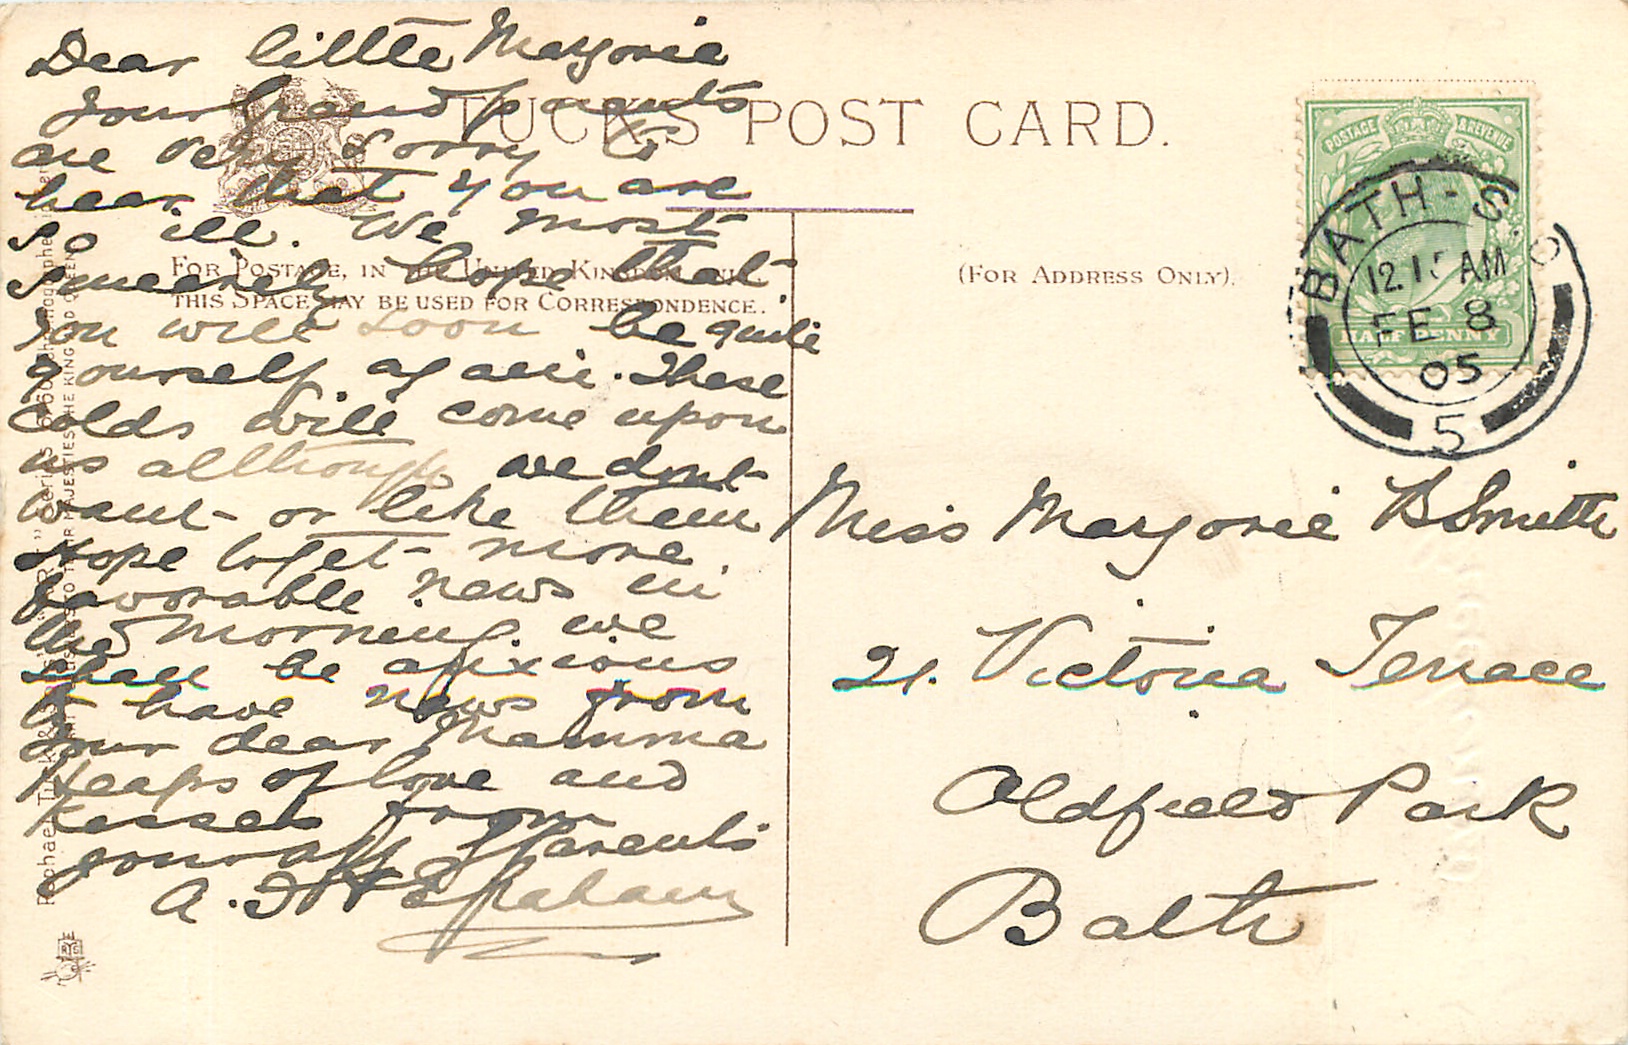 Dear little Marjorie
your Grandparents
are very sorry to
hear that you are
so ill. We most
sincerely hope that
you will soon be quite
yourself again. These
colds will come upon
us allthough we dont
want or like them
Hope to get more
favorable news in
the morning. we
shall be anxious
to have news from
your dear Mamma
Heaps of love and
kisses from
your aff
A.
TUCK'S POST CARD.
FOR POSTAGE, IN THE UNITED KINGDOM ONLY,
THIS SPACE MAY BE USED FOR CORRESPONDENCE.
(FOR ADDRESS ONLY).
POSTAGE & REVENUE
HALF PENNY
BATH - S.O
12.15 AM
FE 8
05
5
Miss Marjorie B Smith
21. Victoria Terrace
Oldfield Park
Bath